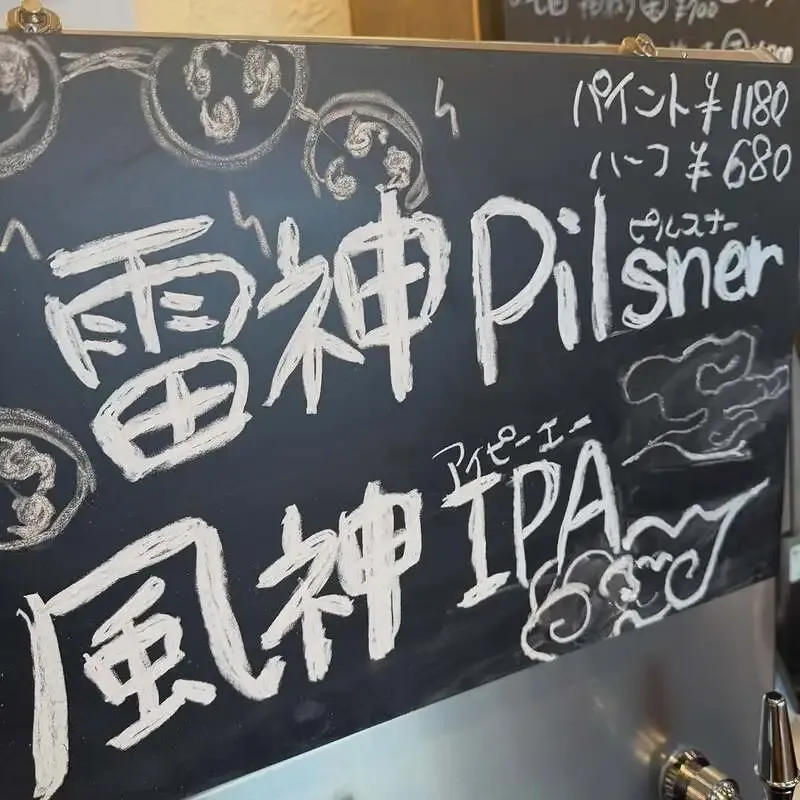 パイント ¥1180
ハーフ ¥680
ピルスナー
雷神 Pilsner
アイピーエー
風神 IPA